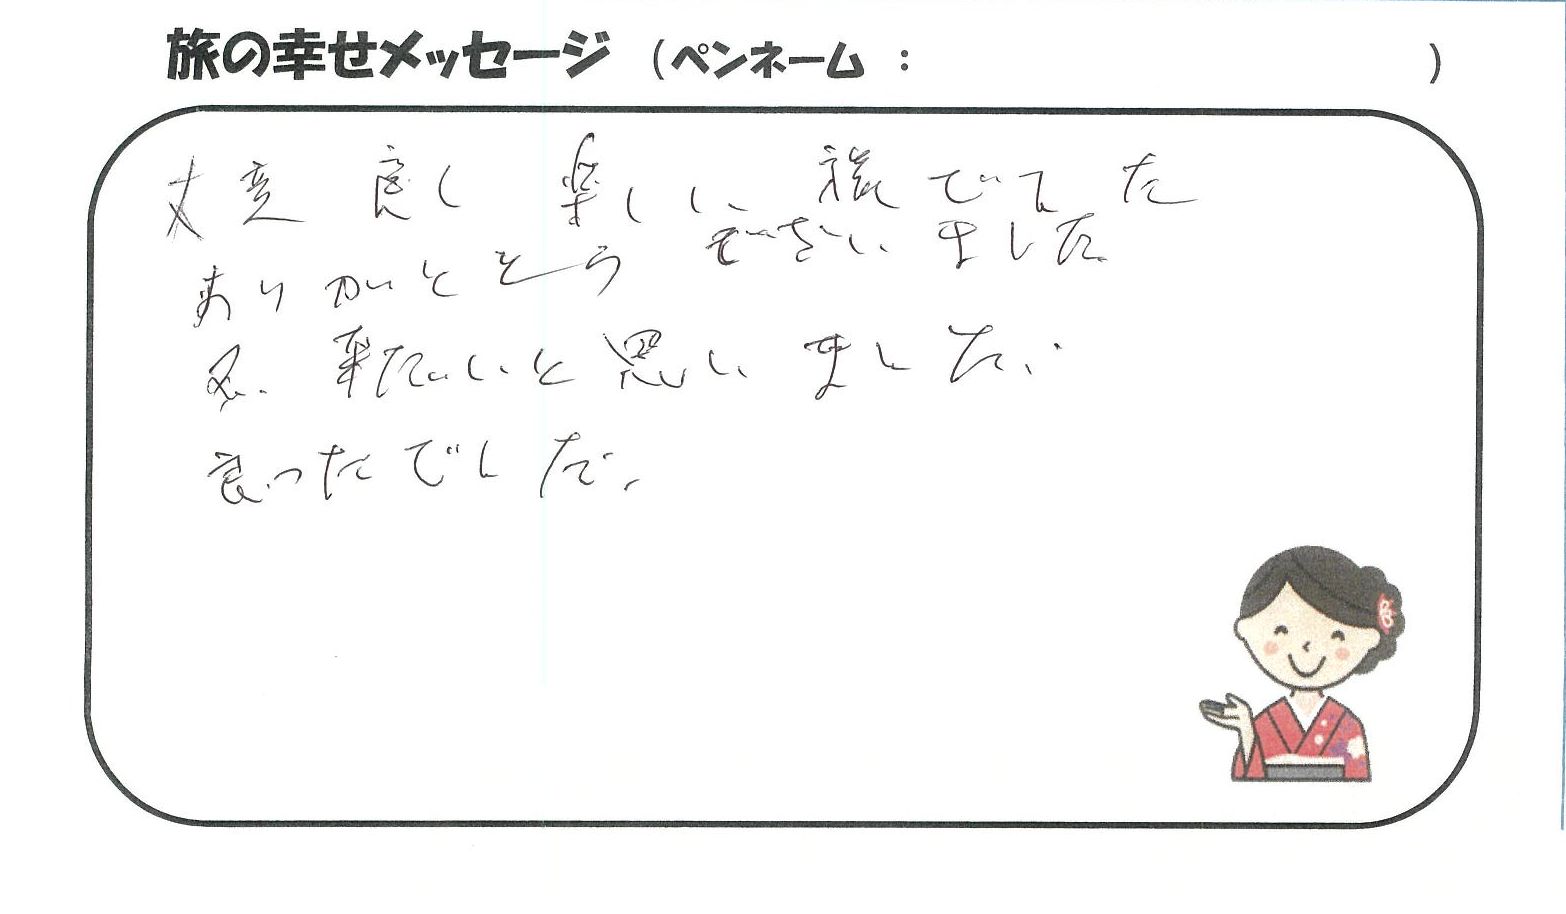 旅の幸せメッセージ (ペンネーム : )
大変 良く 楽しい 旅でした
ありがととう ございました
又 来たいと思いました.
良ったでした.